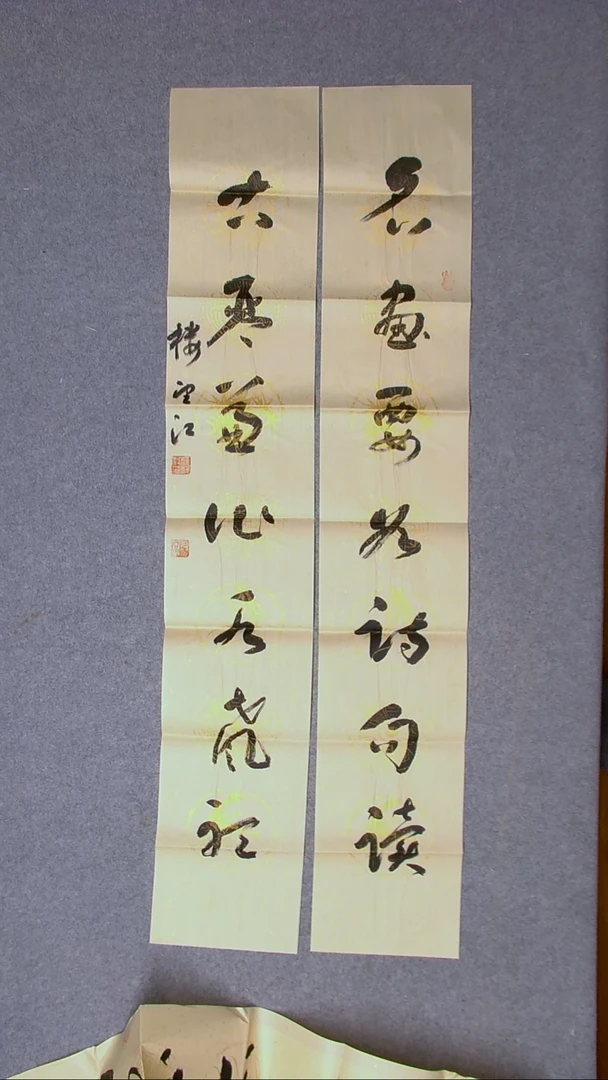 名画要如诗句读
古琴兼作水声听
楼望江